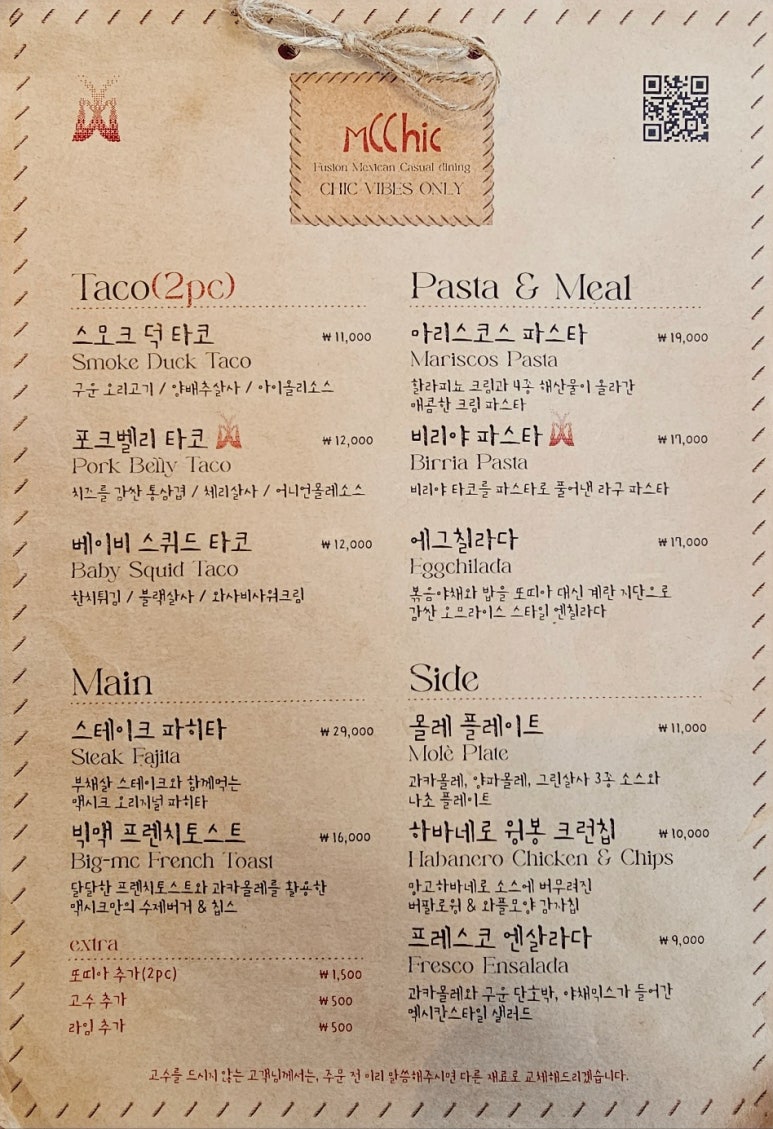 MCChic
Fusion Mexican Casual dining
CHIC VIBES ONLY
Taco(2pc)
스모크 덕 타코 ₩11,000
Smoke Duck Taco
구운 오리고기 / 양배추살사 / 아이올리소스
포크벨리 타코 ₩12,000
Pork Belly Taco
치즈를 감싼 통삼겹 / 체리살사 / 어니언몰레소스
베이비 스퀴드 타코 ₩12,000
Baby Squid Taco
한치튀김 / 블랙살사 / 와사비사워크림
Main
스테이크 파히타 ₩29,000
Steak Fajita
부채살 스테이크와 함께먹는
맥시크 오리지널 파히타
빅맥 프렌치토스트 ₩16,000
Big-mc French Toast
달달한 프렌치토스트와 과카몰레를 활용한
맥시크만의 수제버거 & 칩스
extra
또띠아 추가(2pc) ₩1,500
고수 추가 ₩500
라임 추가 ₩500
Pasta & Meal
마리스코스 파스타 ₩19,000
Mariscos Pasta
할라피뇨 크림과 4종 해산물이 올라간
매콤한 크림 파스타
비리야 파스타 ₩17,000
Birria Pasta
비리야 타코를 파스타로 풀어낸 라구 파스타
에그칠라다 ₩17,000
Eggchilada
볶음야채와 밥을 또띠아 대신 계란 지단으로
감싼 오므라이스 스타일 엔칠라다
Side
몰레 플레이트 ₩11,000
Molè Plate
과카몰레, 양파몰레, 그린살사 3종 소스와
나초 플레이트
하바네로 윙봉 크런칩 ₩10,000
Habanero Chicken & Chips
망고하바네로 소스에 버무려진
버팔로윙 & 와플모양 감자칩
프레스코 엔살라다 ₩9,000
Fresco Ensalada
과카몰레와 구운 단호박, 야채믹스가 들어간
멕시칸스타일 샐러드
고수를 드시지 않는 고객님께서는, 주문 전 미리 말씀해주시면 다른 재료로 교체해드리겠습니다.